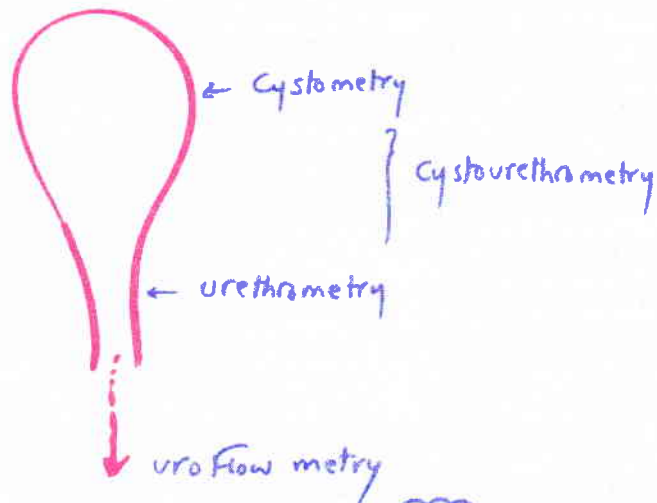 ← Cystometry
} Cystourethrometry
← urethrometry
uroflow metry